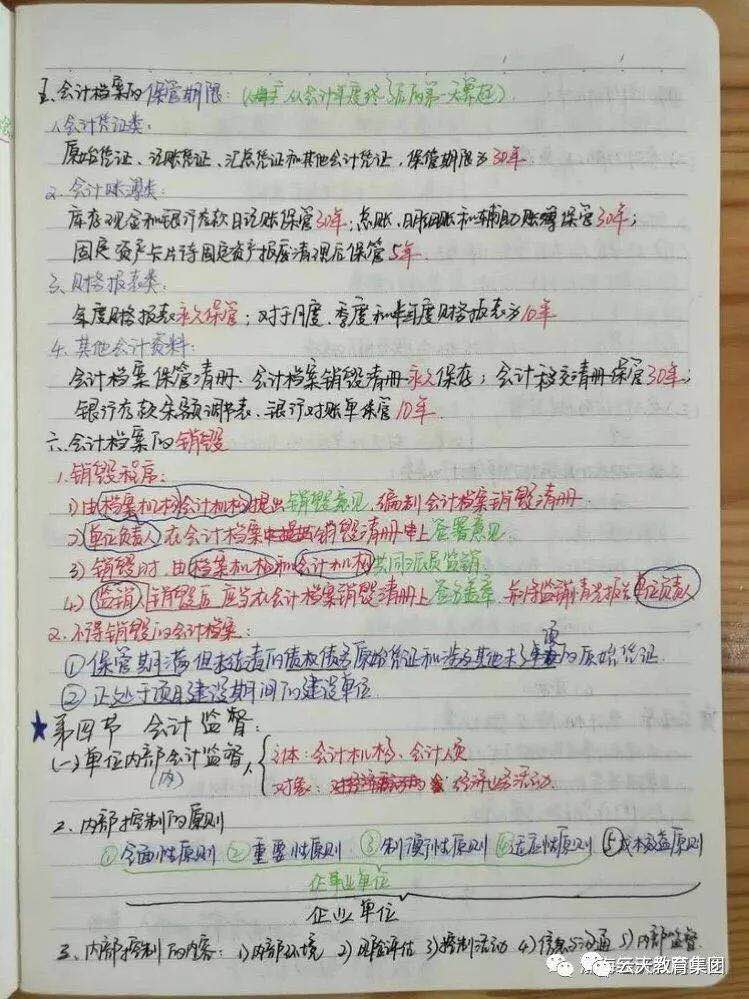 五、会计档案的保管期限：（从会计年度终了后的第一天算起）
1.会计凭证类：
原始凭证、记账凭证、汇总凭证和其他会计凭证，保管期限为30年.
2.会计账簿类：
库存现金和银行存款日记账保管30年；总账、明细账和辅助账簿保管30年；
固定资产卡片待固定资产报废清理后保管5年.
3.财务报表类：
年度财务报表永久保管；对于月度、季度和半年度财务报表为10年
4.其他会计资料：
会计档案保管清册、会计档案销毁清册永久保存；会计移交清册保管30年；
银行存款余额调节表、银行对账单保管10年.
六、会计档案的销毁
1.销毁程序：
1)由档案机构会计机构提出销毁意见，编制会计档案销毁清册.
2)单位负责人在会计档案销毁清册上签署意见
3)销毁时，由档案机构和会计机构共同派员监销.
4)监销 销毁后应当在会计档案销毁清册上签名盖章，并将监销情况报告单位负责人
2.不得销毁的会计档案：
①保管期满但未结清的债权债务原始凭证和涉及其他未了事项的原始凭证.
②正处于项目建设期间的建设单位.
★第四节 会计监督：
(一)单位内部会计监督 {主体：会计机构、会计人员
(内) 对象：经济业务活动.
2.内部控制的原则
①全面性原则 ②重要性原则 ③制衡性原则 ④适应性原则 ⑤成本效益原则
企事业单位
企业单位
3.内部控制的内容：1)内部环境 2)风险评估 3)控制活动 4)信息与沟通 5)内部监督.
海云天教育集团